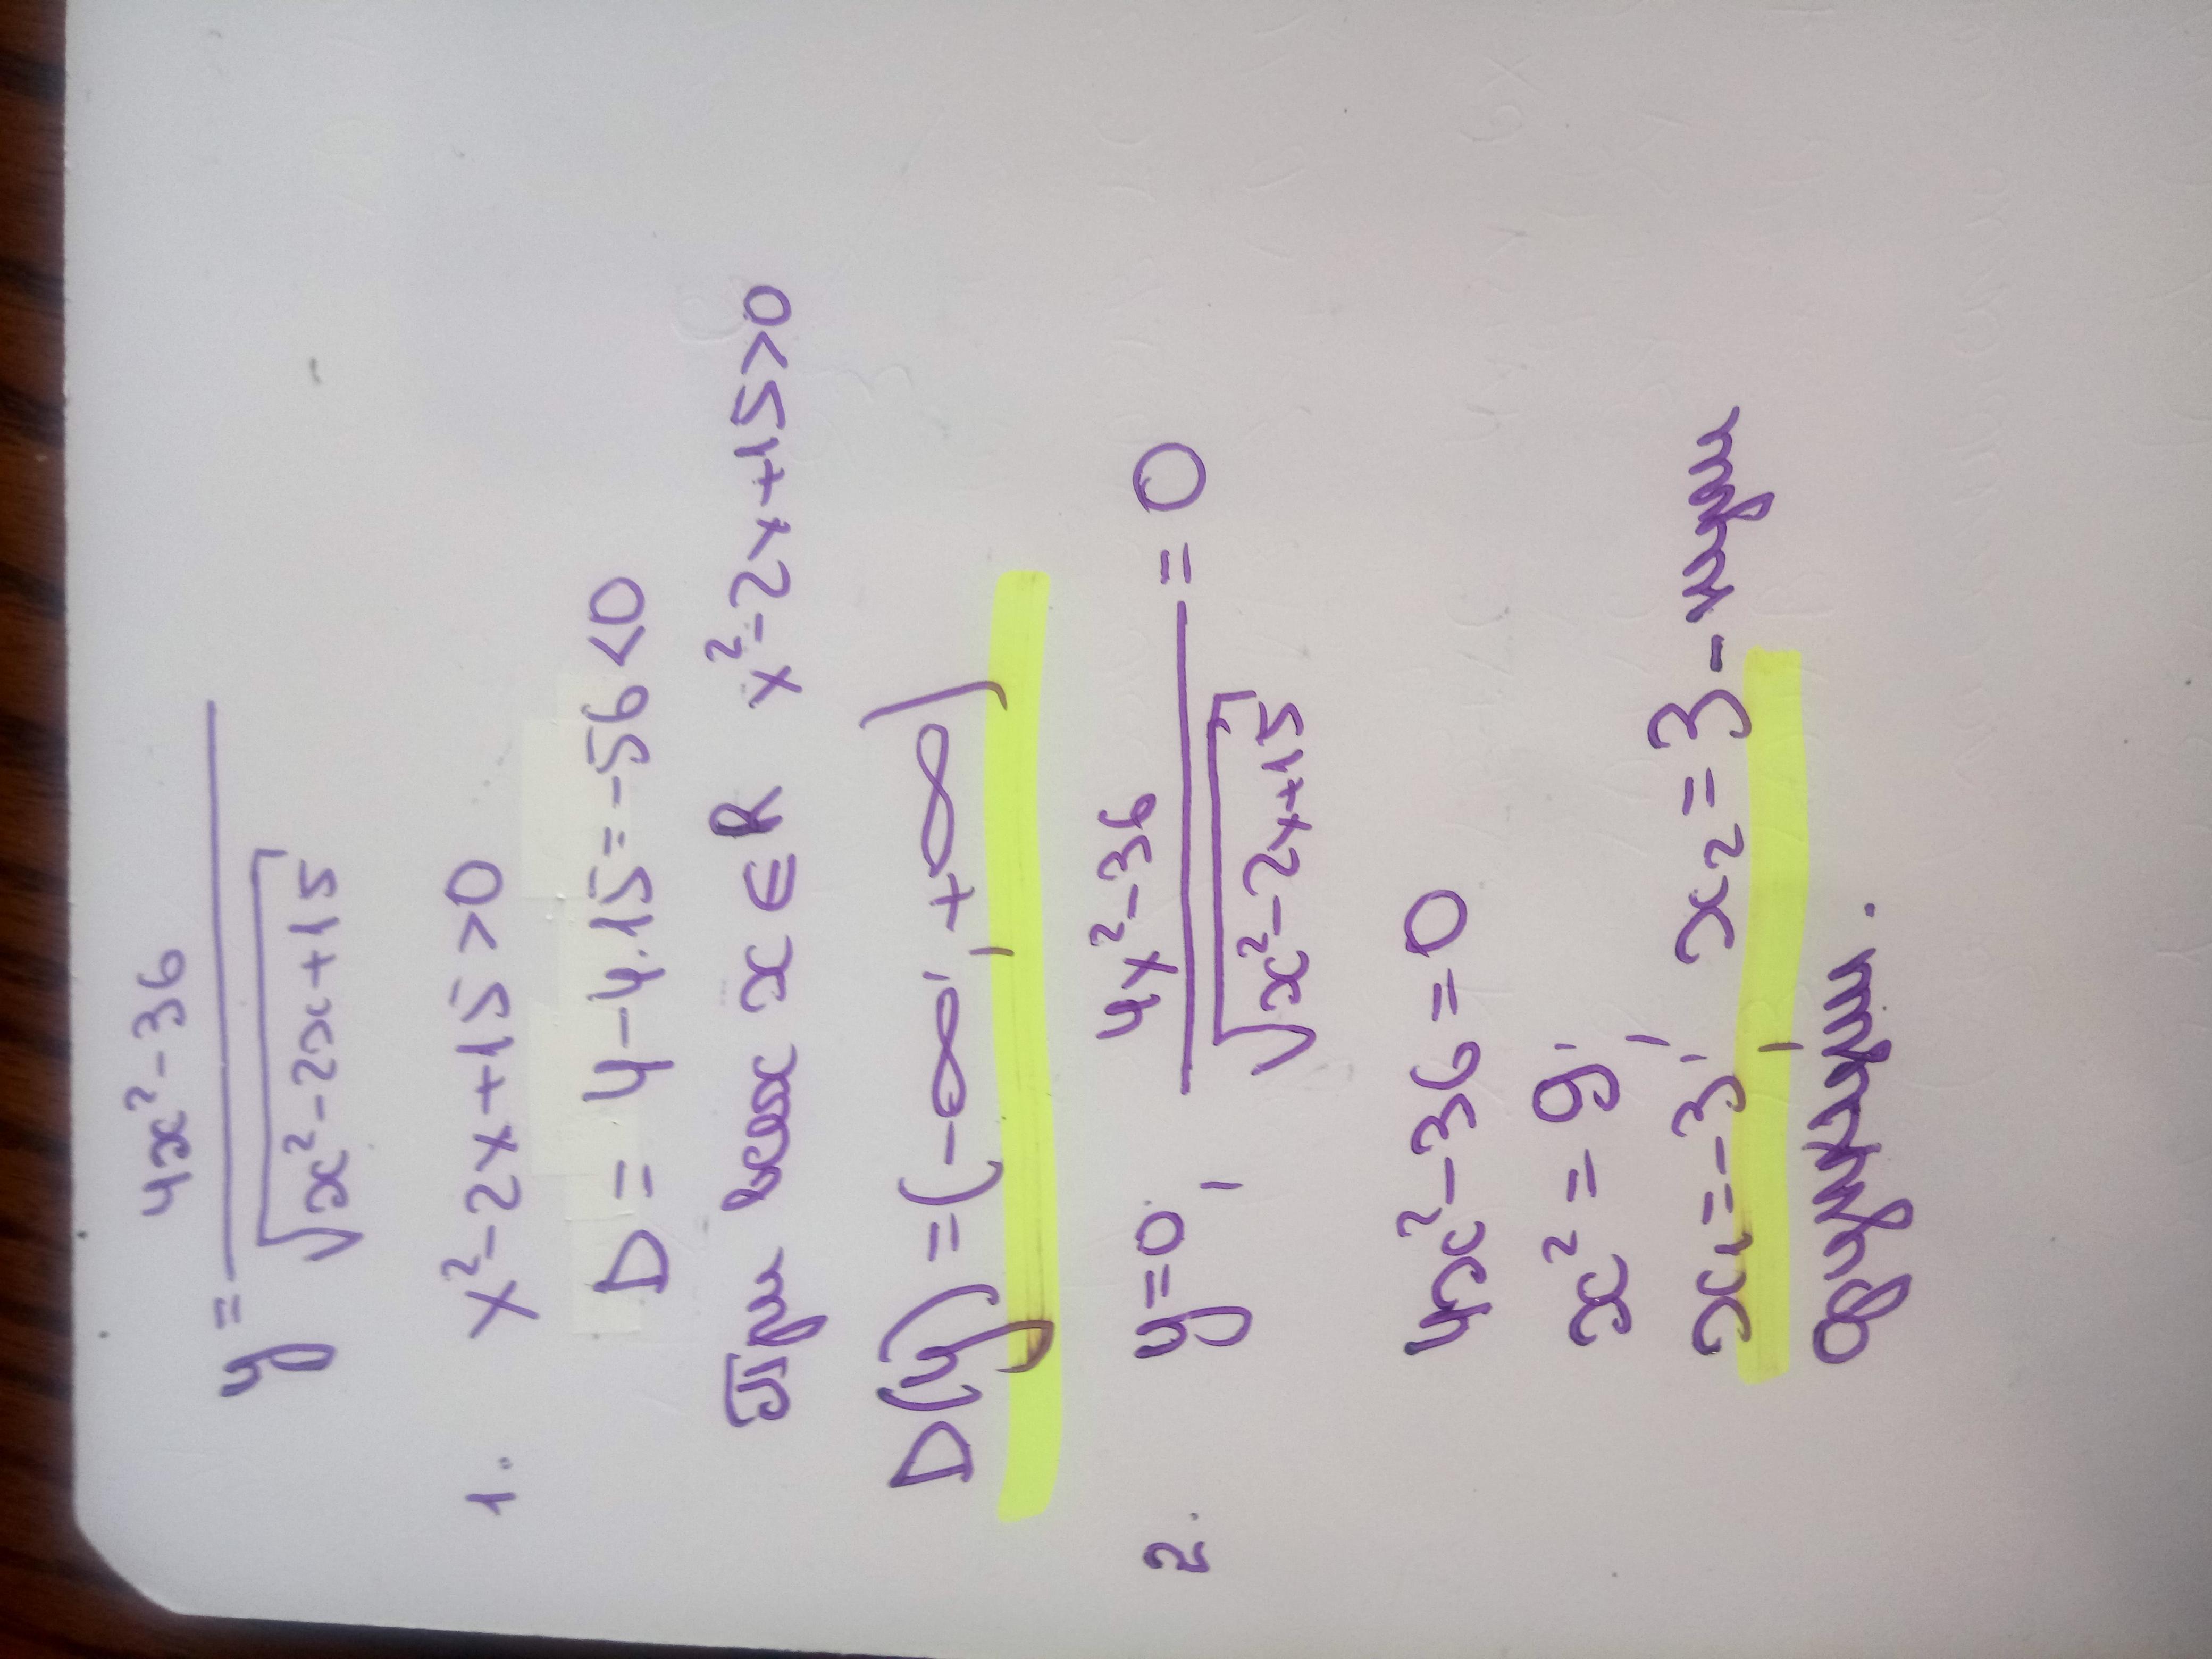 y = 4x² - 36 / √x² - 2x + 15
1. x² - 2x + 15 > 0
D = 4 - 4·15 = -56 < 0
При всех x ∈ R x² - 2x + 15 > 0
D(y) = (-∞; +∞)
2. y = 0; 4x² - 36 / √x² - 2x + 15 = 0
4x² - 36 = 0
x² = 9;
x₁ = -3; x₂ = 3 - нули
функции.